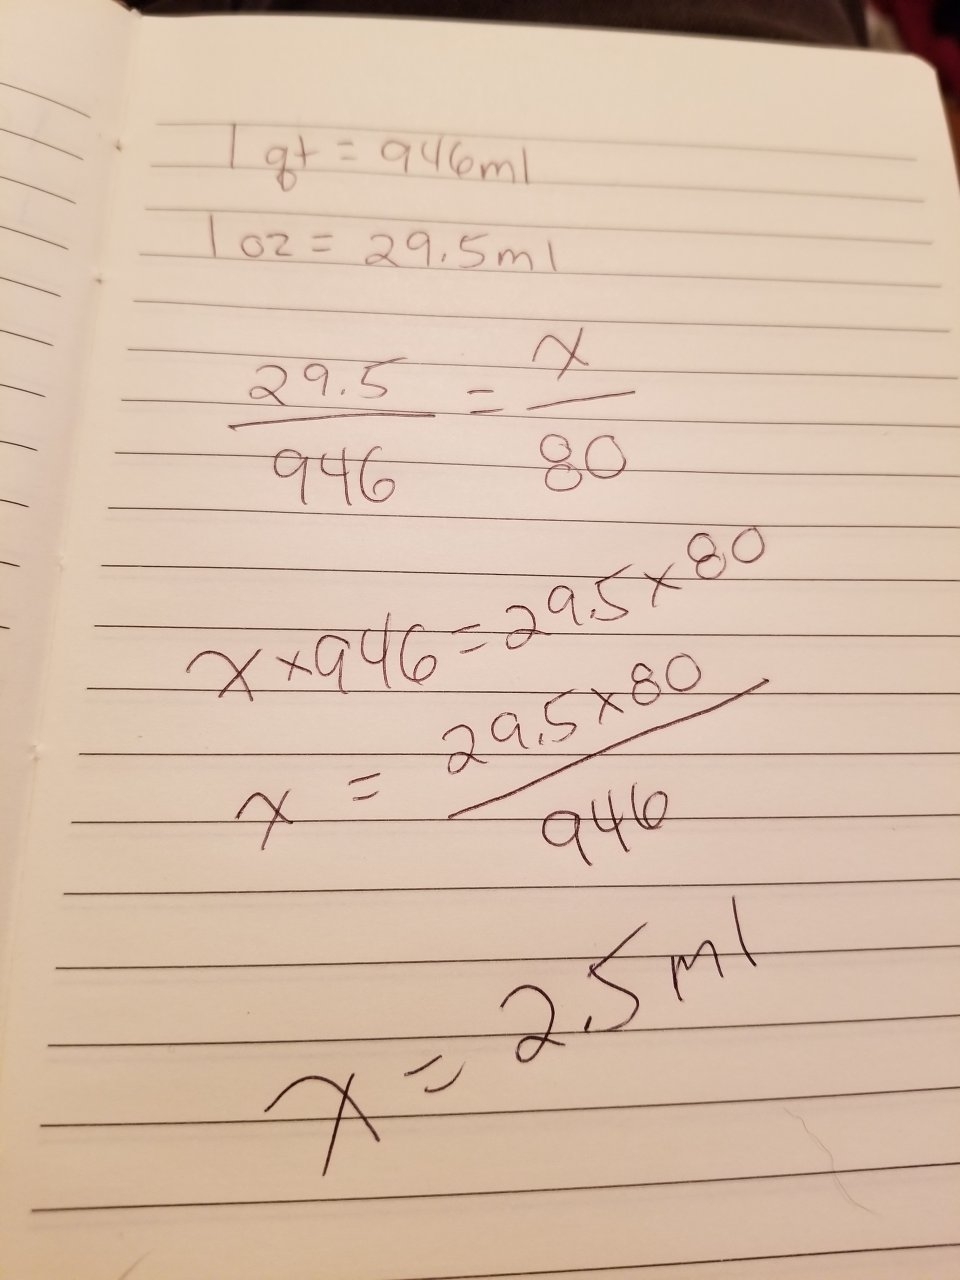 1 qt = 946ml
1 oz = 29.5ml
29.5 = x
946 80
x × 946 = 29.5 × 80
x = 29.5 × 80
946
x = 2.5 ml